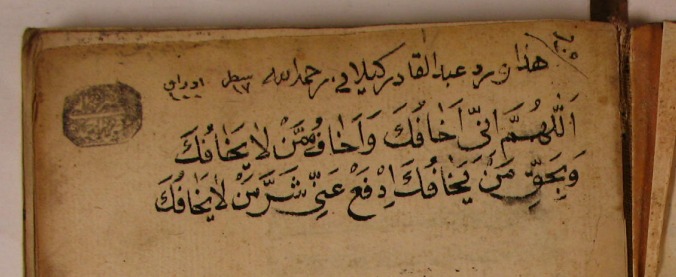 هذا ورد عبد القادر كيلاني رحمه الله سطر ١٧ اوراق ١٠٠
اَللّٰهُمَّ اِنّىِ اَخَافُكَ وَاَخَافُ مِمَّنْ لَا يَخَافُكَ
وَبِحَقِّ مَنْ يَخَافُكَ اِدْفَعْ عَنّىِ شَرَّ مَنْ لَا يَخَافُكَ